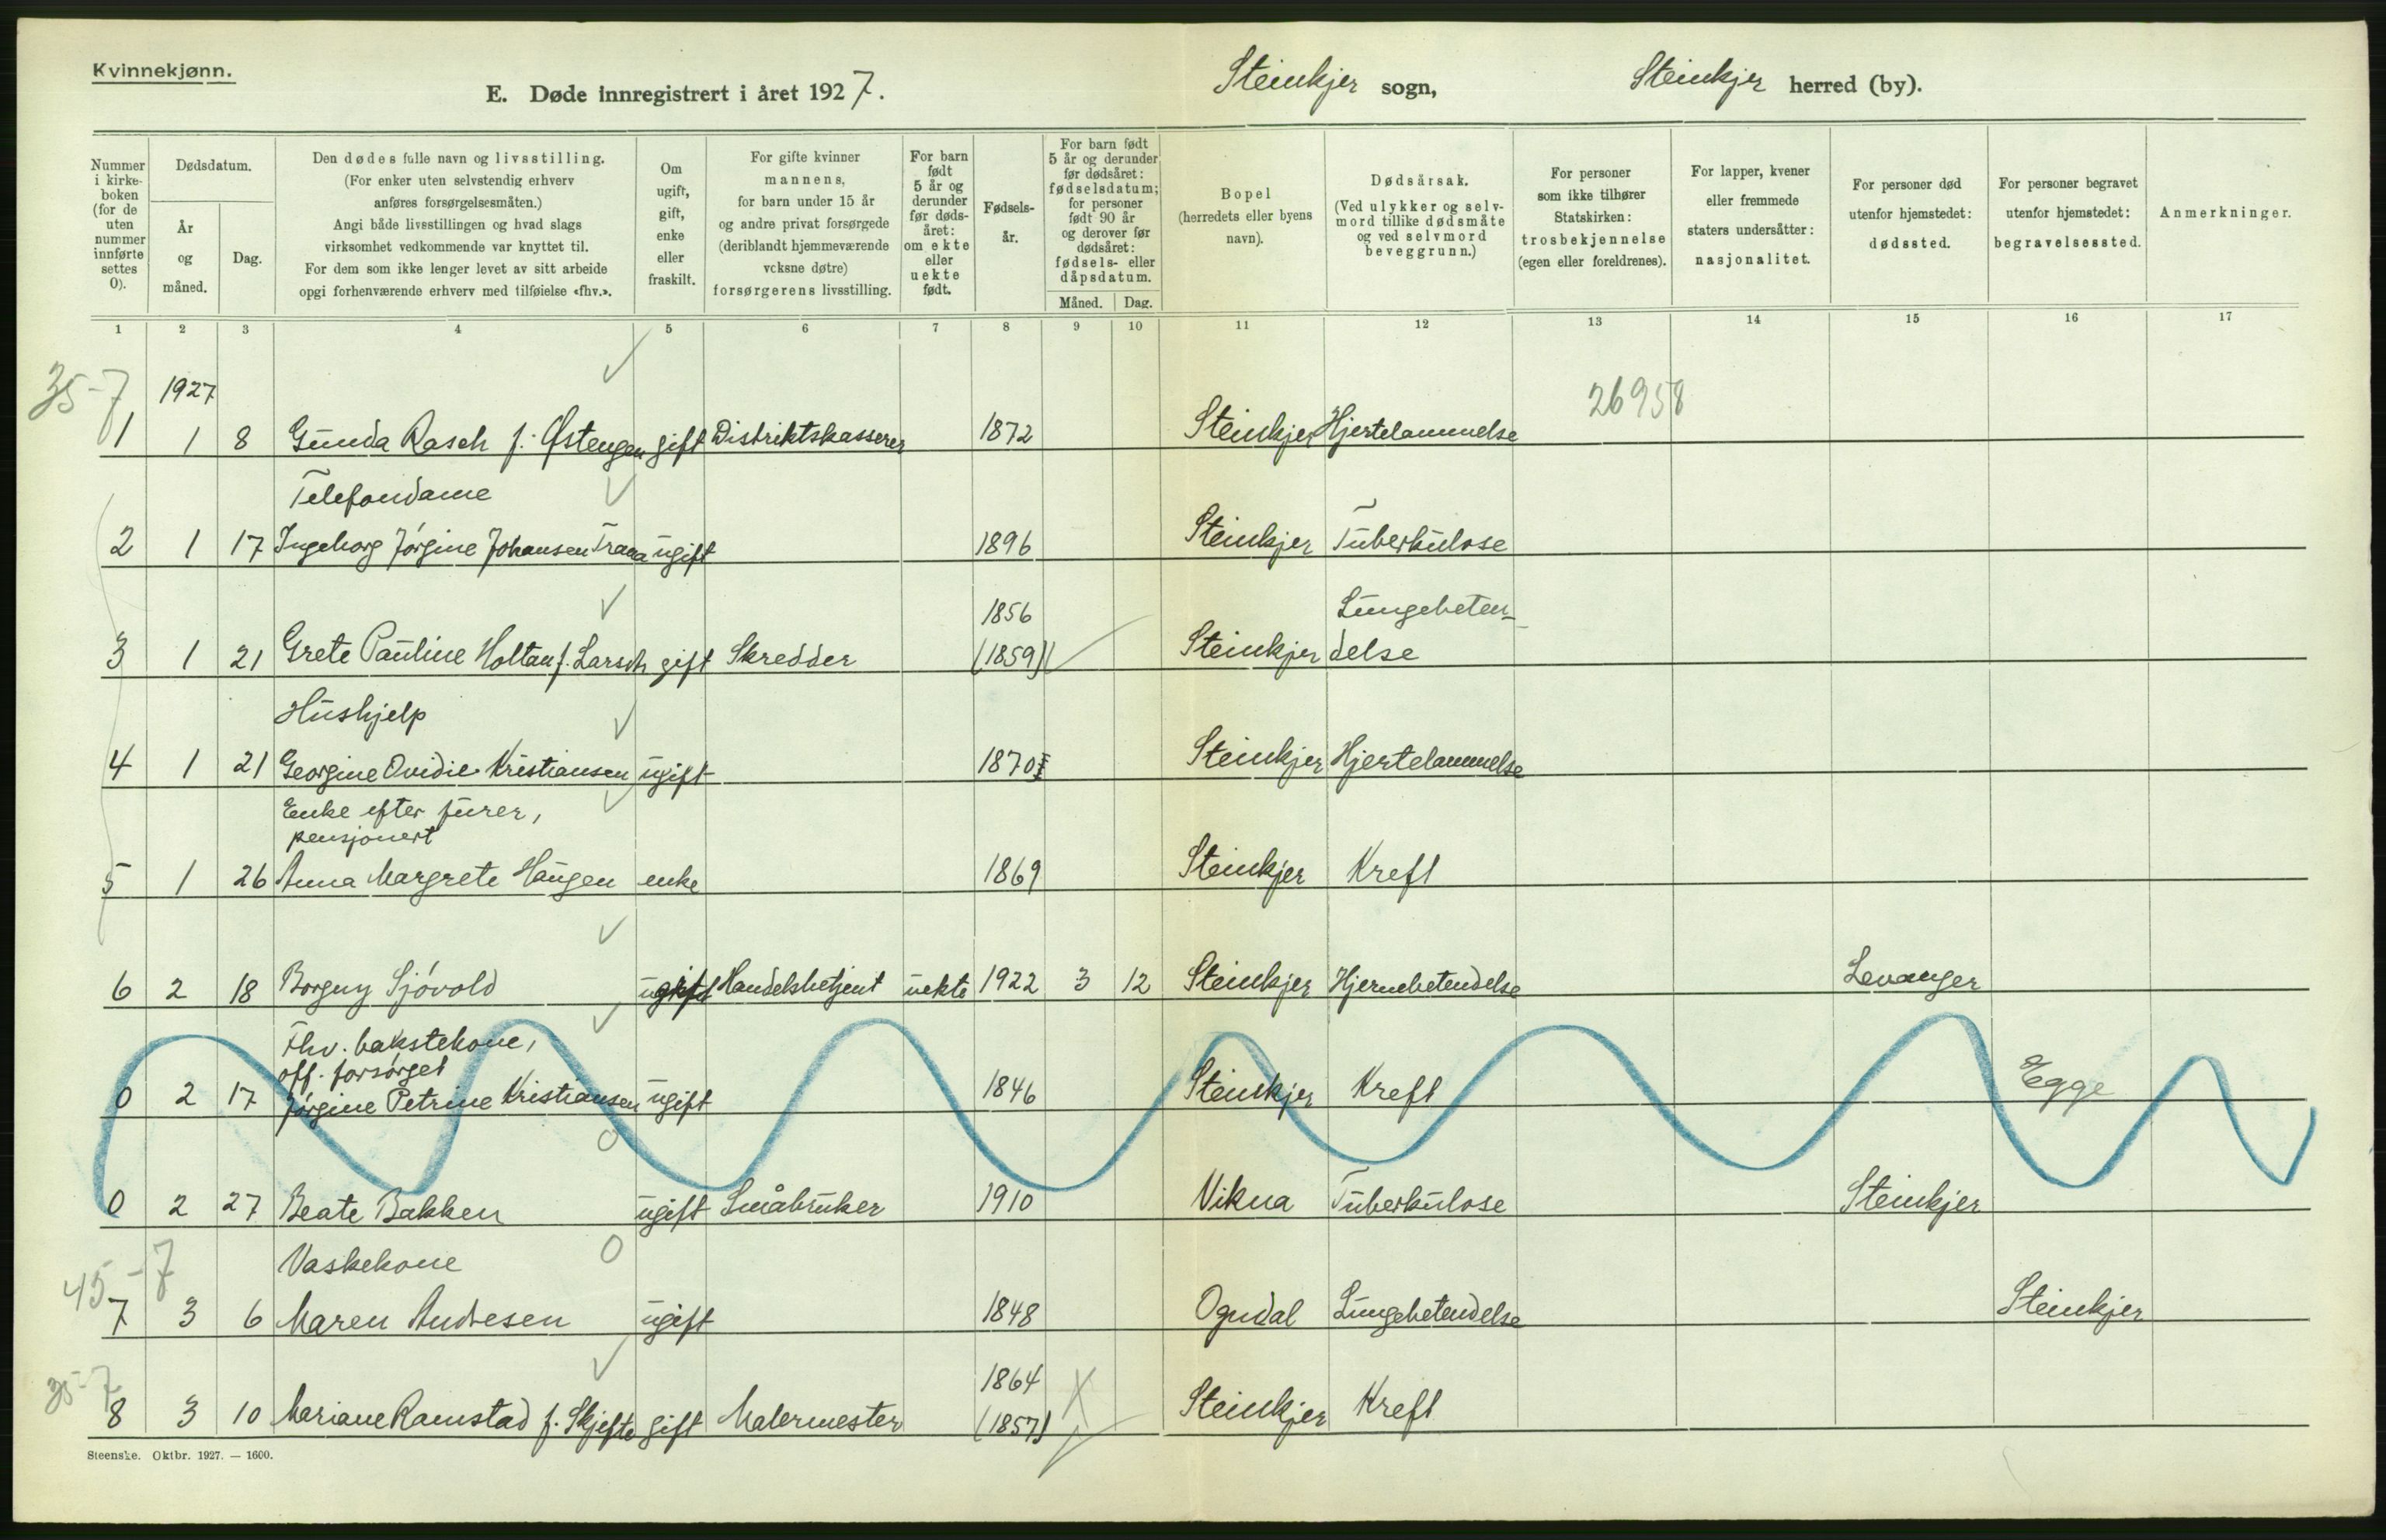 Kvinnekjønn.
E. Døde innregistrert i året 1927. Steinkjer sogn, Steinkjer herred (by).
Nummer i kirkeboken (for de uten nummer innførte settes 0).
Dødsdatum.
År og måned.
Dag.
Den dødes fulle navn og livsstilling.
(For enker uten selvstendig erhverv
anføres forsørgelsesmåten.)
Angi både livsstillingen og hvad slags
virksomhet vedkommende var knyttet til.
For dem som ikke lenger levet av sitt arbeide
opgi forhenværende erhverv med tilføielse «fhv.».
Om
ugift,
gift,
enke
eller
fraskilt.
For gifte kvinner
mannens,
for barn under 15 år
og andre privat forsørgede
(deriblandt hjemmeværende
voksne døtre)
forsørgerens livsstilling.
For barn
født
5 år og
derunder
før døds-
året:
om ekte
eller
uekte
født.
Fødsels-
år.
For barn født
5 år og derunder
før dødsåret:
fødselsdatum;
for personer
født 90 år
og derover før
dødsåret:
fødsels- eller
dåpsdatum.
Måned. Dag.
Bopel
(herredets eller byens
navn).
Dødsårsak.
(Ved ulykker og selv-
mord tillike dødsmåte
og ved selvmord
beveggrunn.)
For personer
som ikke tilhører
Statskirken:
trosbekjennelse
(egen eller foreldrenes).
For lapper, kvener
eller fremmede
staters undersåtter:
nasjonalitet.
For personer død
utenfor hjemstedet:
dødssted.
For personer begravet
utenfor hjemstedet:
begravelsessted.
Anmerkninger.
1 2 3 4 5 6 7 8 9 10 11 12 13 14 15 16 17
35-7 1927 26958
1 1 8 Gunda Rasch f. Østengen gift Distriktskasserer 1872 Steinkjer Hjertelammelse
Telefondame
2 1 17 Ingeborg Jørgine Johansen Trana ugift 1896 Steinkjer Tuberkulose
1856 Lungebeten-
3 1 21 Grete Pauline Holtan f. Larsen gift Skredder (1859) Steinkjer delse
Hushjelp
4 1 21 Georgine Ovidie Kristiansen ugift 1870 Steinkjer Hjertelammelse
Enke efter furer,
pensjonert
5 1 26 Anna Margrete Haugen enke 1869 Steinkjer Kreft
6 2 18 Borguy Sjøvold ugift Handelsbetjent uekte 1922 3 12 Steinkjer Hjernebetendelse Levanger
Fhv. bakstekone,
off. forsørget
0 2 17 Jørgine Petrine Kristiansen ugift 1846 Steinkjer Kreft Egge
0 2 27 Beate Bakken ugift Småbruker 1910 Vikna Tuberkulose Steinkjer
45-7 Vaskekone
7 3 6 Maren Andresen ugift 1848 Ogndal Lungebetendelse Steinkjer
35-7 1864
8 3 10 Mariane Ramstad f. Skjefte gift Malermester (1857) Steinkjer Kreft
Steenske. Oktbr. 1927. — 1600.